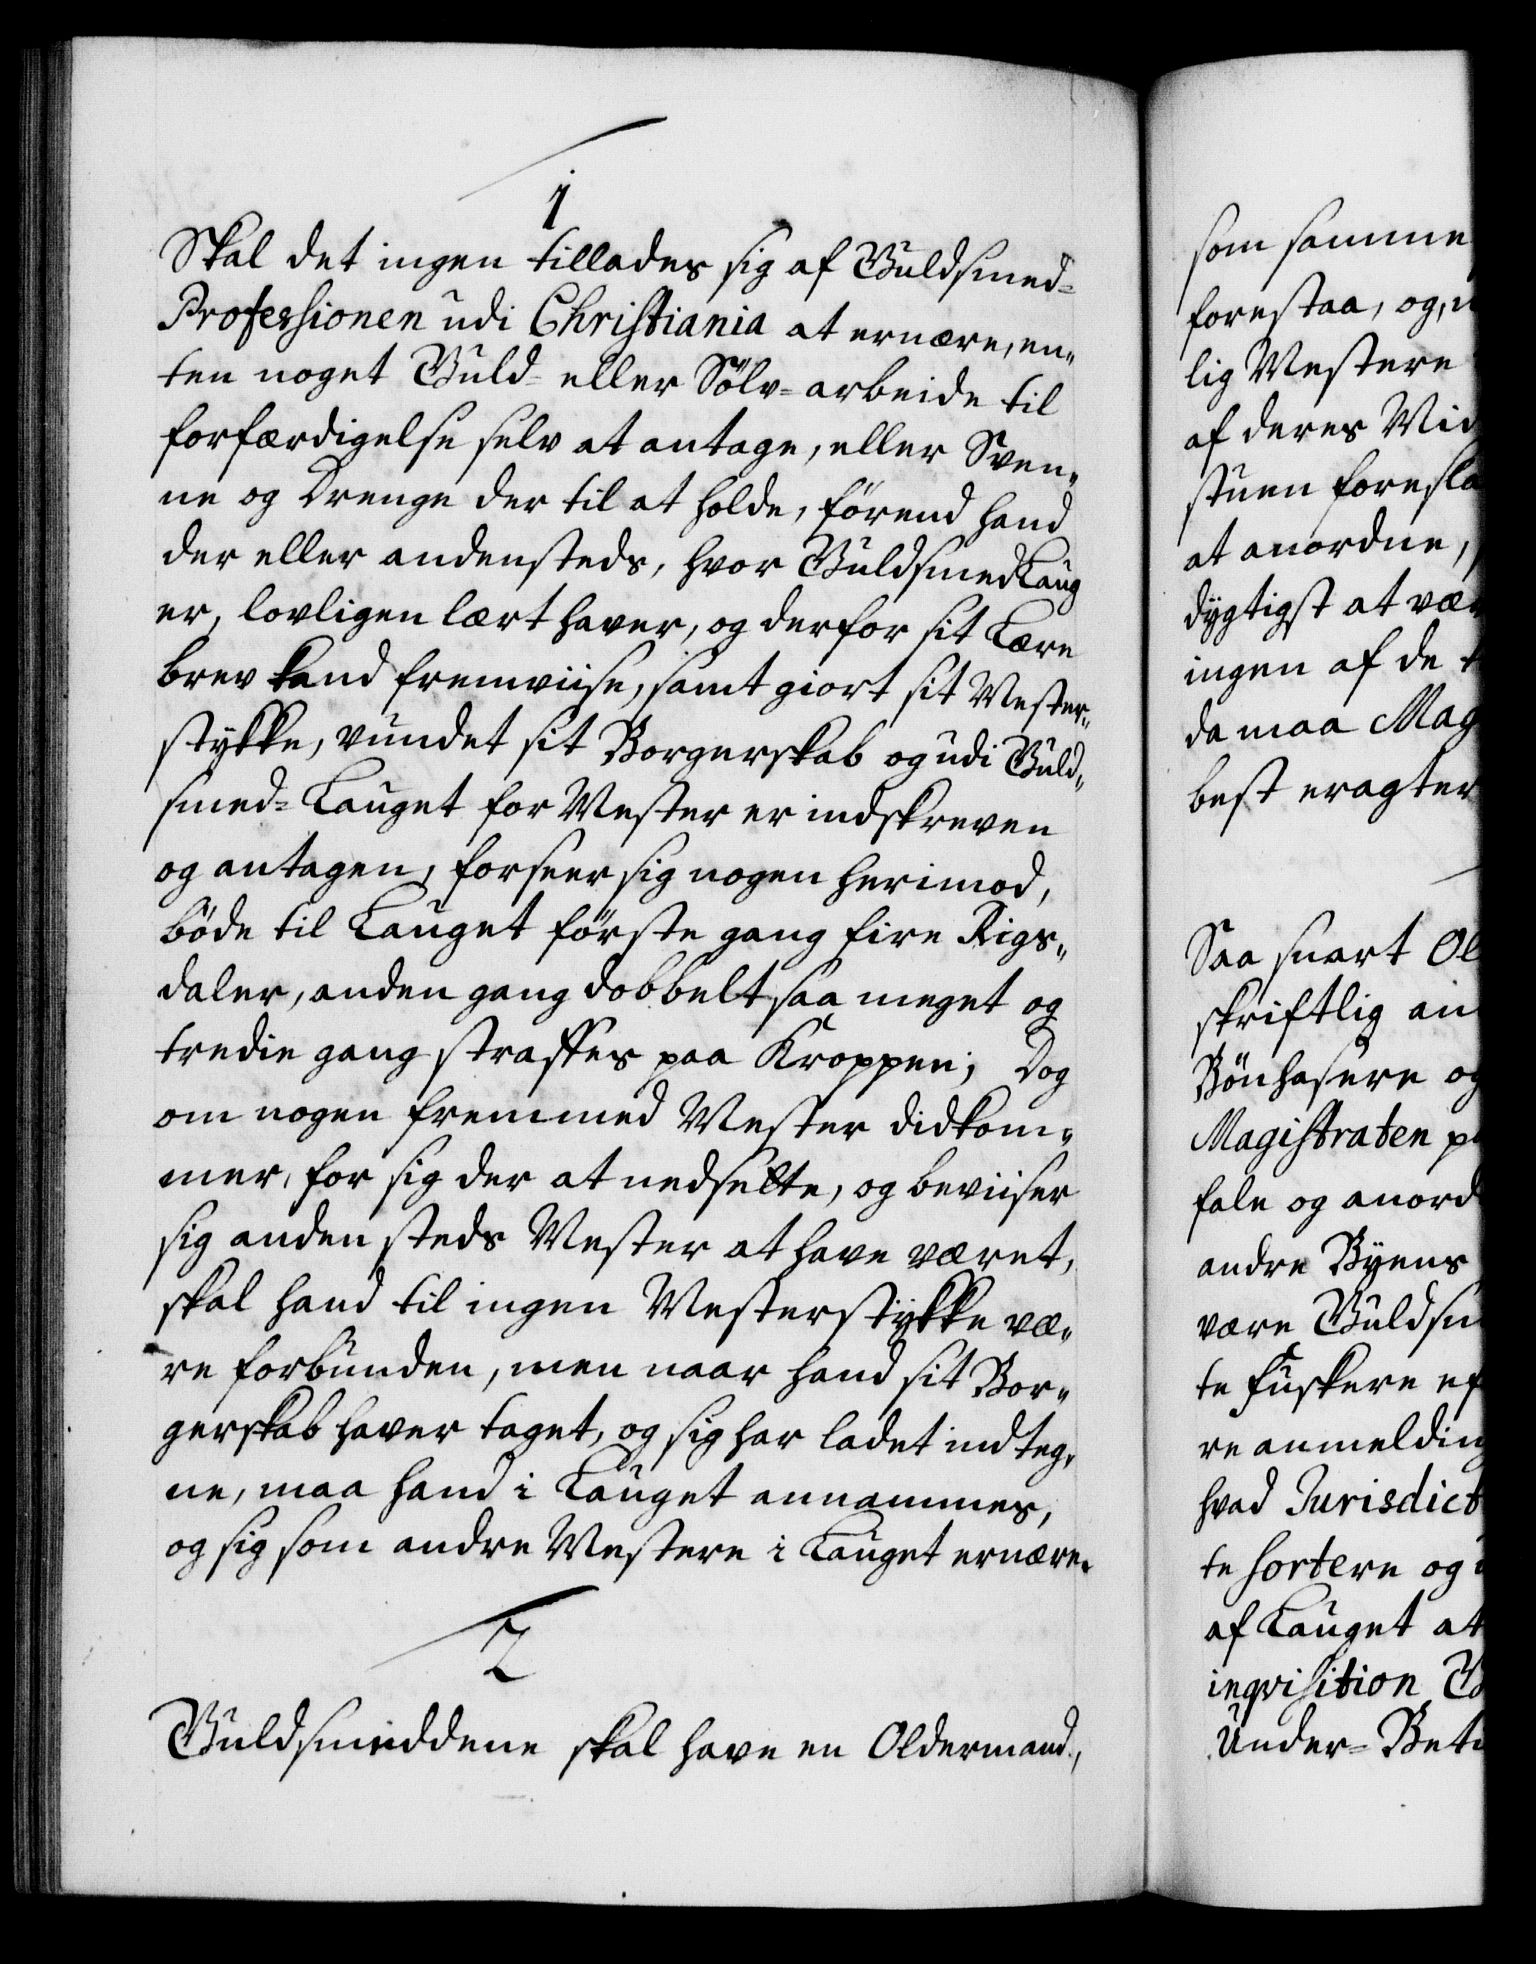 1
Skal det ingen tillades sig af Guldsmed=
Professionen udi Christiania at ernære, en„
ten noget Guld= eller Sölv=arbeide til
forfærdigelse selv at antage, eller Sven„
ne og Drenge der til at holde, förend hand
der eller andensteds, hvor GuldsmedLaug
er, lovligen lært haver, og derfor sit Lære
brev kand fremviise, samt giort sit Mester„
stÿkke, vundet sit Borgerskab og udi Guld„
smed=Lauget for Mester er indskreven
og antagen, forseer sig nogen herimod,
böde til Lauget förste gang fire Rigs„
daler, anden gang dobbelt saa meget og
tredie gang straffes paa Kroppen; Dog
om nogen fremmed Mester didkom„
mer, for sig der at nedsette, og beviiser
sig anden steds Mester at have været,
skal hand til ingen Mesterstÿkke væ„
re forbunden, men naar hand sit Bor„
gerskab haver taget, og sig har ladet indteg„
ne, maa hand i Lauget annammes,
og sig som andre Mestere i Lauget ernære.
2
Guldsmeddene skal have en Oldermand,
som samme
forestaa, og,
lig Mestere
af deres Mid
stuen foresla
at anordne,
dÿgtigst at vær
ingen af de t
da maa Mag
best eragter
Saa snart Ol
skriftlig an
Bönhasere og
Magistraten p
fale og anord
andre Bÿens
være Guldsm
te fuskere ef
re anmelding
hvad Jurisdict
te sortere og
af Lauget at
inqvisition
Under=Bet